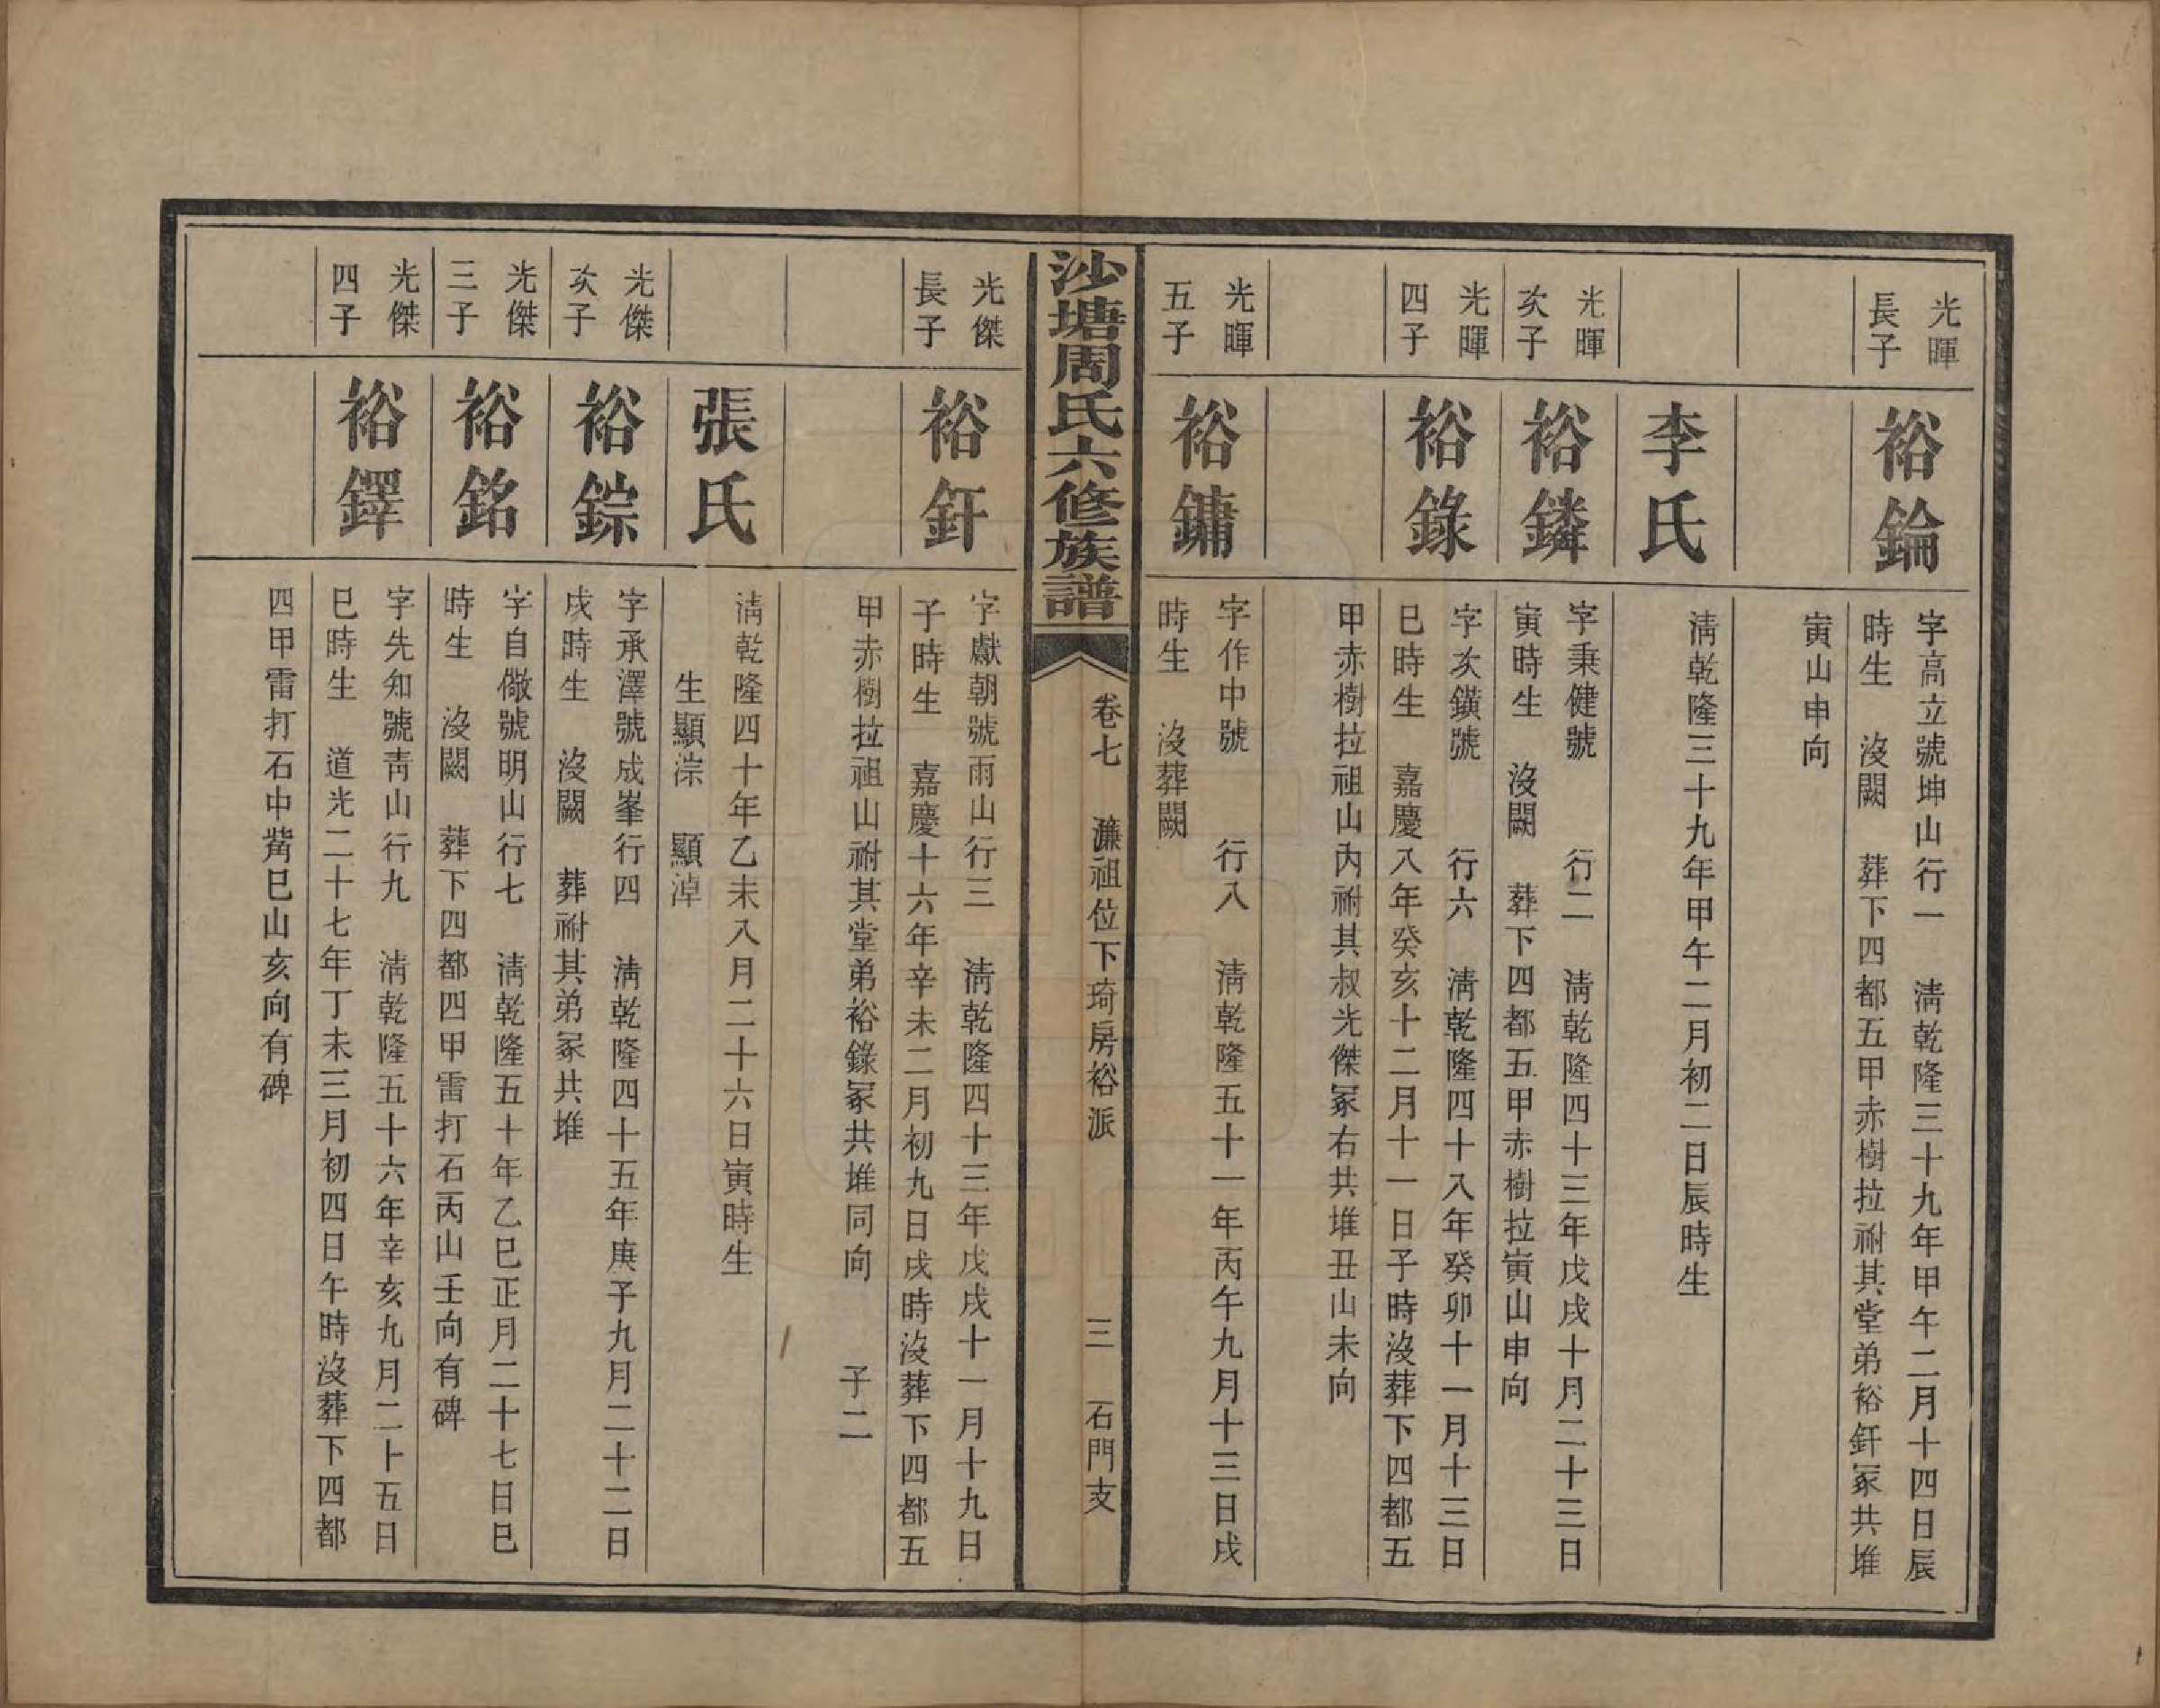 光暉
長子
裕錀
字高立號坤山行一　淸乾隆三十九年甲午二月十四日辰
時生　沒闕　葬下四都五甲赤樹拉祔其堂弟裕釬冢共堆
寅山申向
李氏
淸乾隆三十九年甲午二月初二日辰時生
光暉
次子
裕鏻
字秉健號　　行二　淸乾隆四十三年戊戌十月二十三日
寅時生　沒闕　葬下四都五甲赤樹拉寅山申向
光暉
四子
裕錄
字次鐄號　　行六　淸乾隆四十八年癸卯十一月十三日
巳時生　嘉慶八年癸亥十二月十一日子時沒葬下四都五
甲赤樹拉祖山內祔其叔光傑冢右共堆丑山未向
光暉
五子
裕鏞
字作中號　　行八　淸乾隆五十一年丙午九月十三日戌
時生　沒葬闕
沙塘周氏六修族譜
卷七　濂祖位下琦房裕派　三　石門支
光傑
長子
裕釬
字獻朝號雨山行三　淸乾隆四十三年戊戌十一月十九日
子時生　嘉慶十六年辛未二月初九日戌時沒葬下四都五
甲赤樹拉祖山祔其堂弟裕錄冢共堆同向　　子二
張氏
淸乾隆四十年乙未八月二十六日寅時生
生顯淙　顯淖
光傑
次子
裕錝
字承澤號成峯行四　淸乾隆四十五年庚子九月二十二日
戌時生　沒闕　葬祔其弟冢共堆
光傑
三子
裕銘
字自儆號明山行七　淸乾隆五十年乙巳正月二十七日巳
時生　沒闕　葬下四都四甲雷打石丙山壬向有碑
光傑
四子
裕鐸
字先知號靑山行九　淸乾隆五十六年辛亥九月二十五日
巳時生　道光二十七年丁未三月初四日午時沒葬下四都
四甲雷打石中嵜巳山亥向有碑